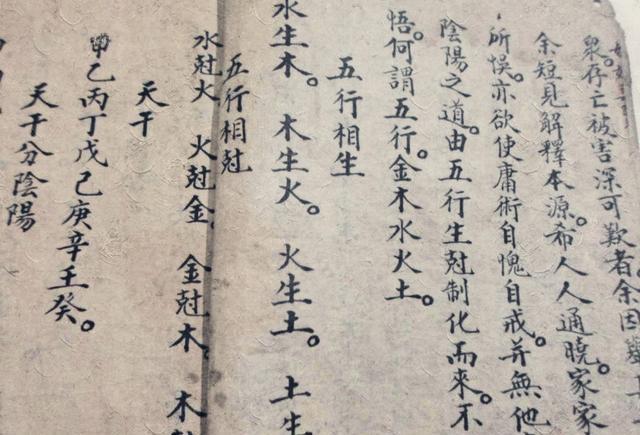 存亡被害深可歎者余因
余短見解釋本源。希人人通曉。家家
所悮。亦欲使庸術自愧自戒。并無他
陰陽之道。由五行生尅制化而來。不
悟。何謂五行。金木水火土。
五行相生
水生木。木生火。火生土。土生
五行相尅
水尅火 火尅金 金尅木 木
天干
甲乙丙丁戊己庚辛壬癸。
天干分陰陽